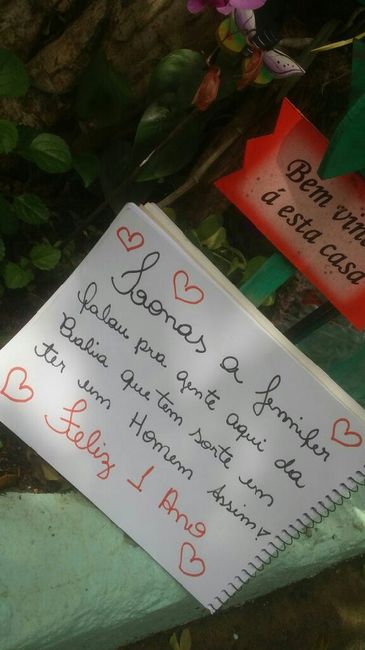 Bem vin
á esta casa
Saonas a Jennifer
falau pra gente aqui da
Bahia que tem sorte em
ter um Homem Assim
Feliz 1 Ano